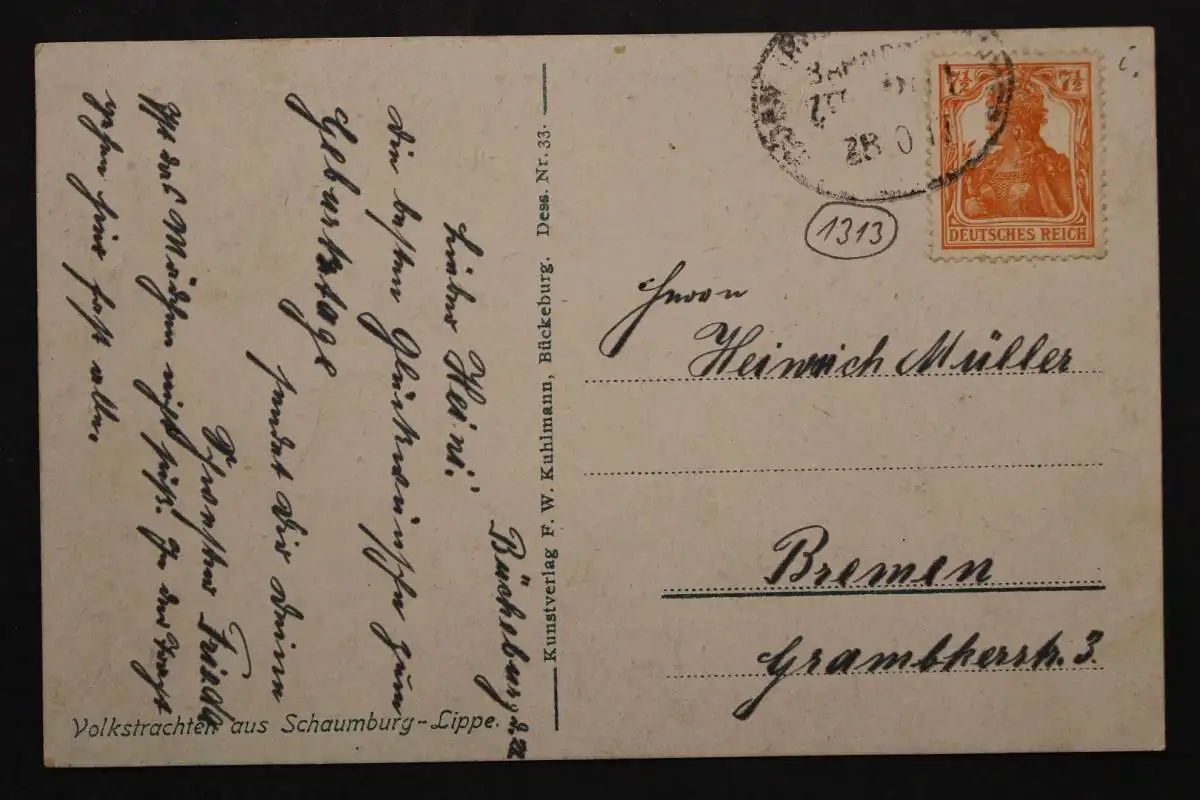 Bückeburg d. 27.
Lieber Heini!
Die besten Glückwünsche zum
Geburtstage
sendet Dir Deine
Schwester Frieda
Ist das Mädchen nicht süß. In der Tracht
gehen hier fast alle.
Volkstrachten aus Schaumburg-Lippe.
Kunstverlag F. W. Kuhlmann, Bückeburg. Dess. Nr. 33.
ZUG
28
7½ 7½
DEUTSCHES REICH
1313
i.
Herrn
Heinrich Müller
Bremen
Grambkerstr. 3.